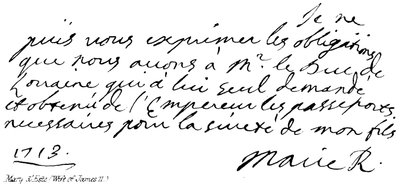 Je ne
puis vous exprimer les obligations
que nous avons à Mr. le Duc de
Loraine qui à lui seul demandé
et obtenu de l'Empereur les passeports
necessaires pour la sureté de mon fils
1713.
Marie R.
Mary d'Este (Wife of James II.)